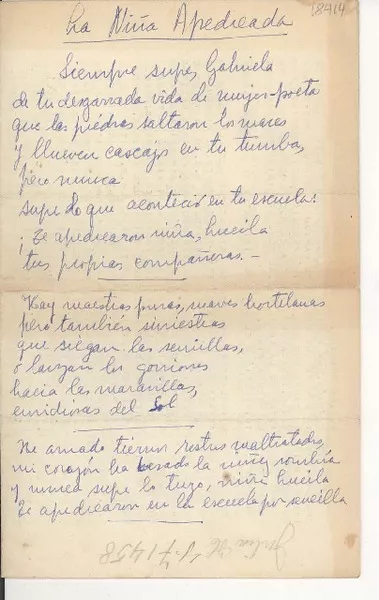 18414
La Niña Apedreada
Siempre supe, Gabriela
de tu desgarrada vida de mujer-poeta
que las piedras saltaron los mares
y llueven cascajos en tu tumba,
pero nunca
supe lo que aconteció en tu escuela:
¡Te apedrearon niña, lucila
tus propias compañeras.-
Hay maestras puras, suaves hortelanas
pero también siniestras
que siegan las semillas,
o lanzan los gorriones
hacia las maravillas,
envidiosas del Sol
He amado tiernos restros maltratados
mi corazón ha besado la niñez sombría
y nunca supe lo tuyo, niña lucila
Te apedrearon en la escuela por sencilla